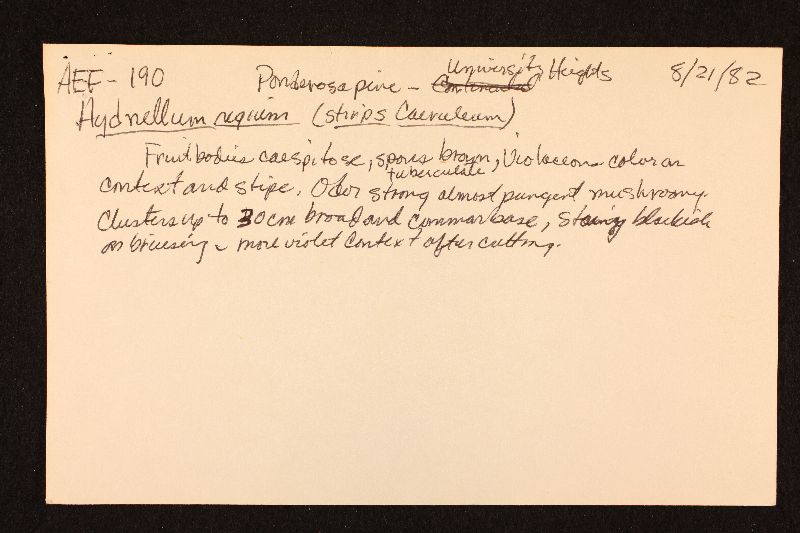 AEF-190 Ponderosa pine - University Heights 8/21/82
Hydnellum regium (strips Caeruleum)
Fruitbodies caespitose, spores brown, tuberculate, Violaceous color on
context and stipe. Odor strong almost pungent mushroomy.
Clusters up to 30cm broad and common base, staining blackish
on bruising more violet context after cutting.